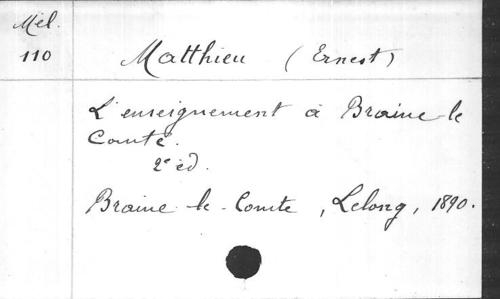 Mél.
110
Matthieu (Ernest)
L'enseignement à Braine-le
Comte.
2e éd.
Braine-le-Comte, Lelong, 1890.